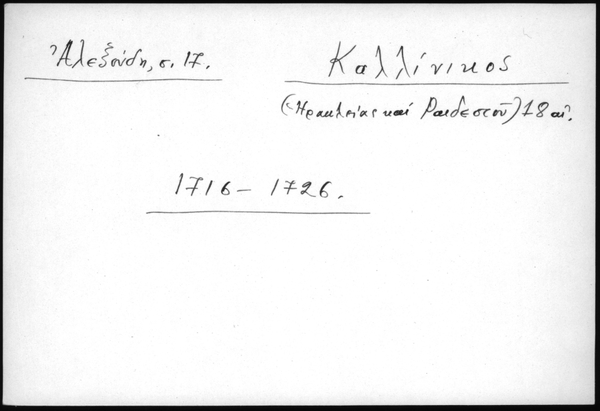 Ἀλεξούδη, σ. 17.
Καλλίνικος
(Ἡρακλείας καί Ραιδεστοῦ) 18 αἰ.
1716 – 1726.